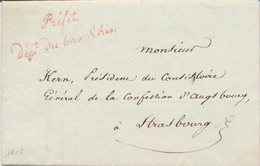 Préfet
Dépt du bas Rhin
monsieur
Kern, Président du Consistoire
Général de la Confession d'Augsbourg,
à Strasbourg
1815